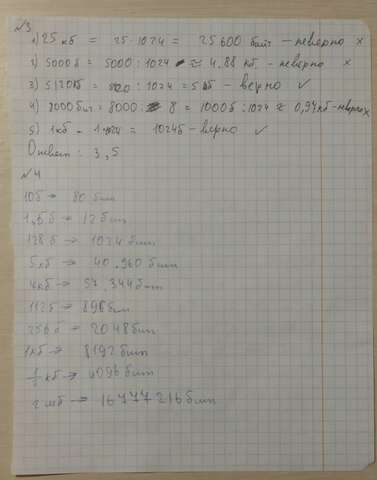 №3
1) 25 кб = 25 · 1024 = 25 600 байт - неверно ×
2) 5000 б = 5000 : 1024 ≈ 4.88 кб - неверно ×
3) 5120 б = : 1024 = 5 кб - верно ✓
4) 8000 бит = 8000 : 8 = 1000 б : 1024 ≈ 0,94 кб - неверно ×
5) 1 кб = 1 · 1024 = 1024 б - верно ✓
Ответ: 3,5
№4
10б → 80 бит
1,5б → 12 бит
128 б → 1024 бит
5кб → 40.960 бит
→ 57.344 бит
112б → 896 бит
256 б → 2048 бит
1кб → 8192 бит
1/2 кб → 4096 бит
2 мб → 16777216 бит